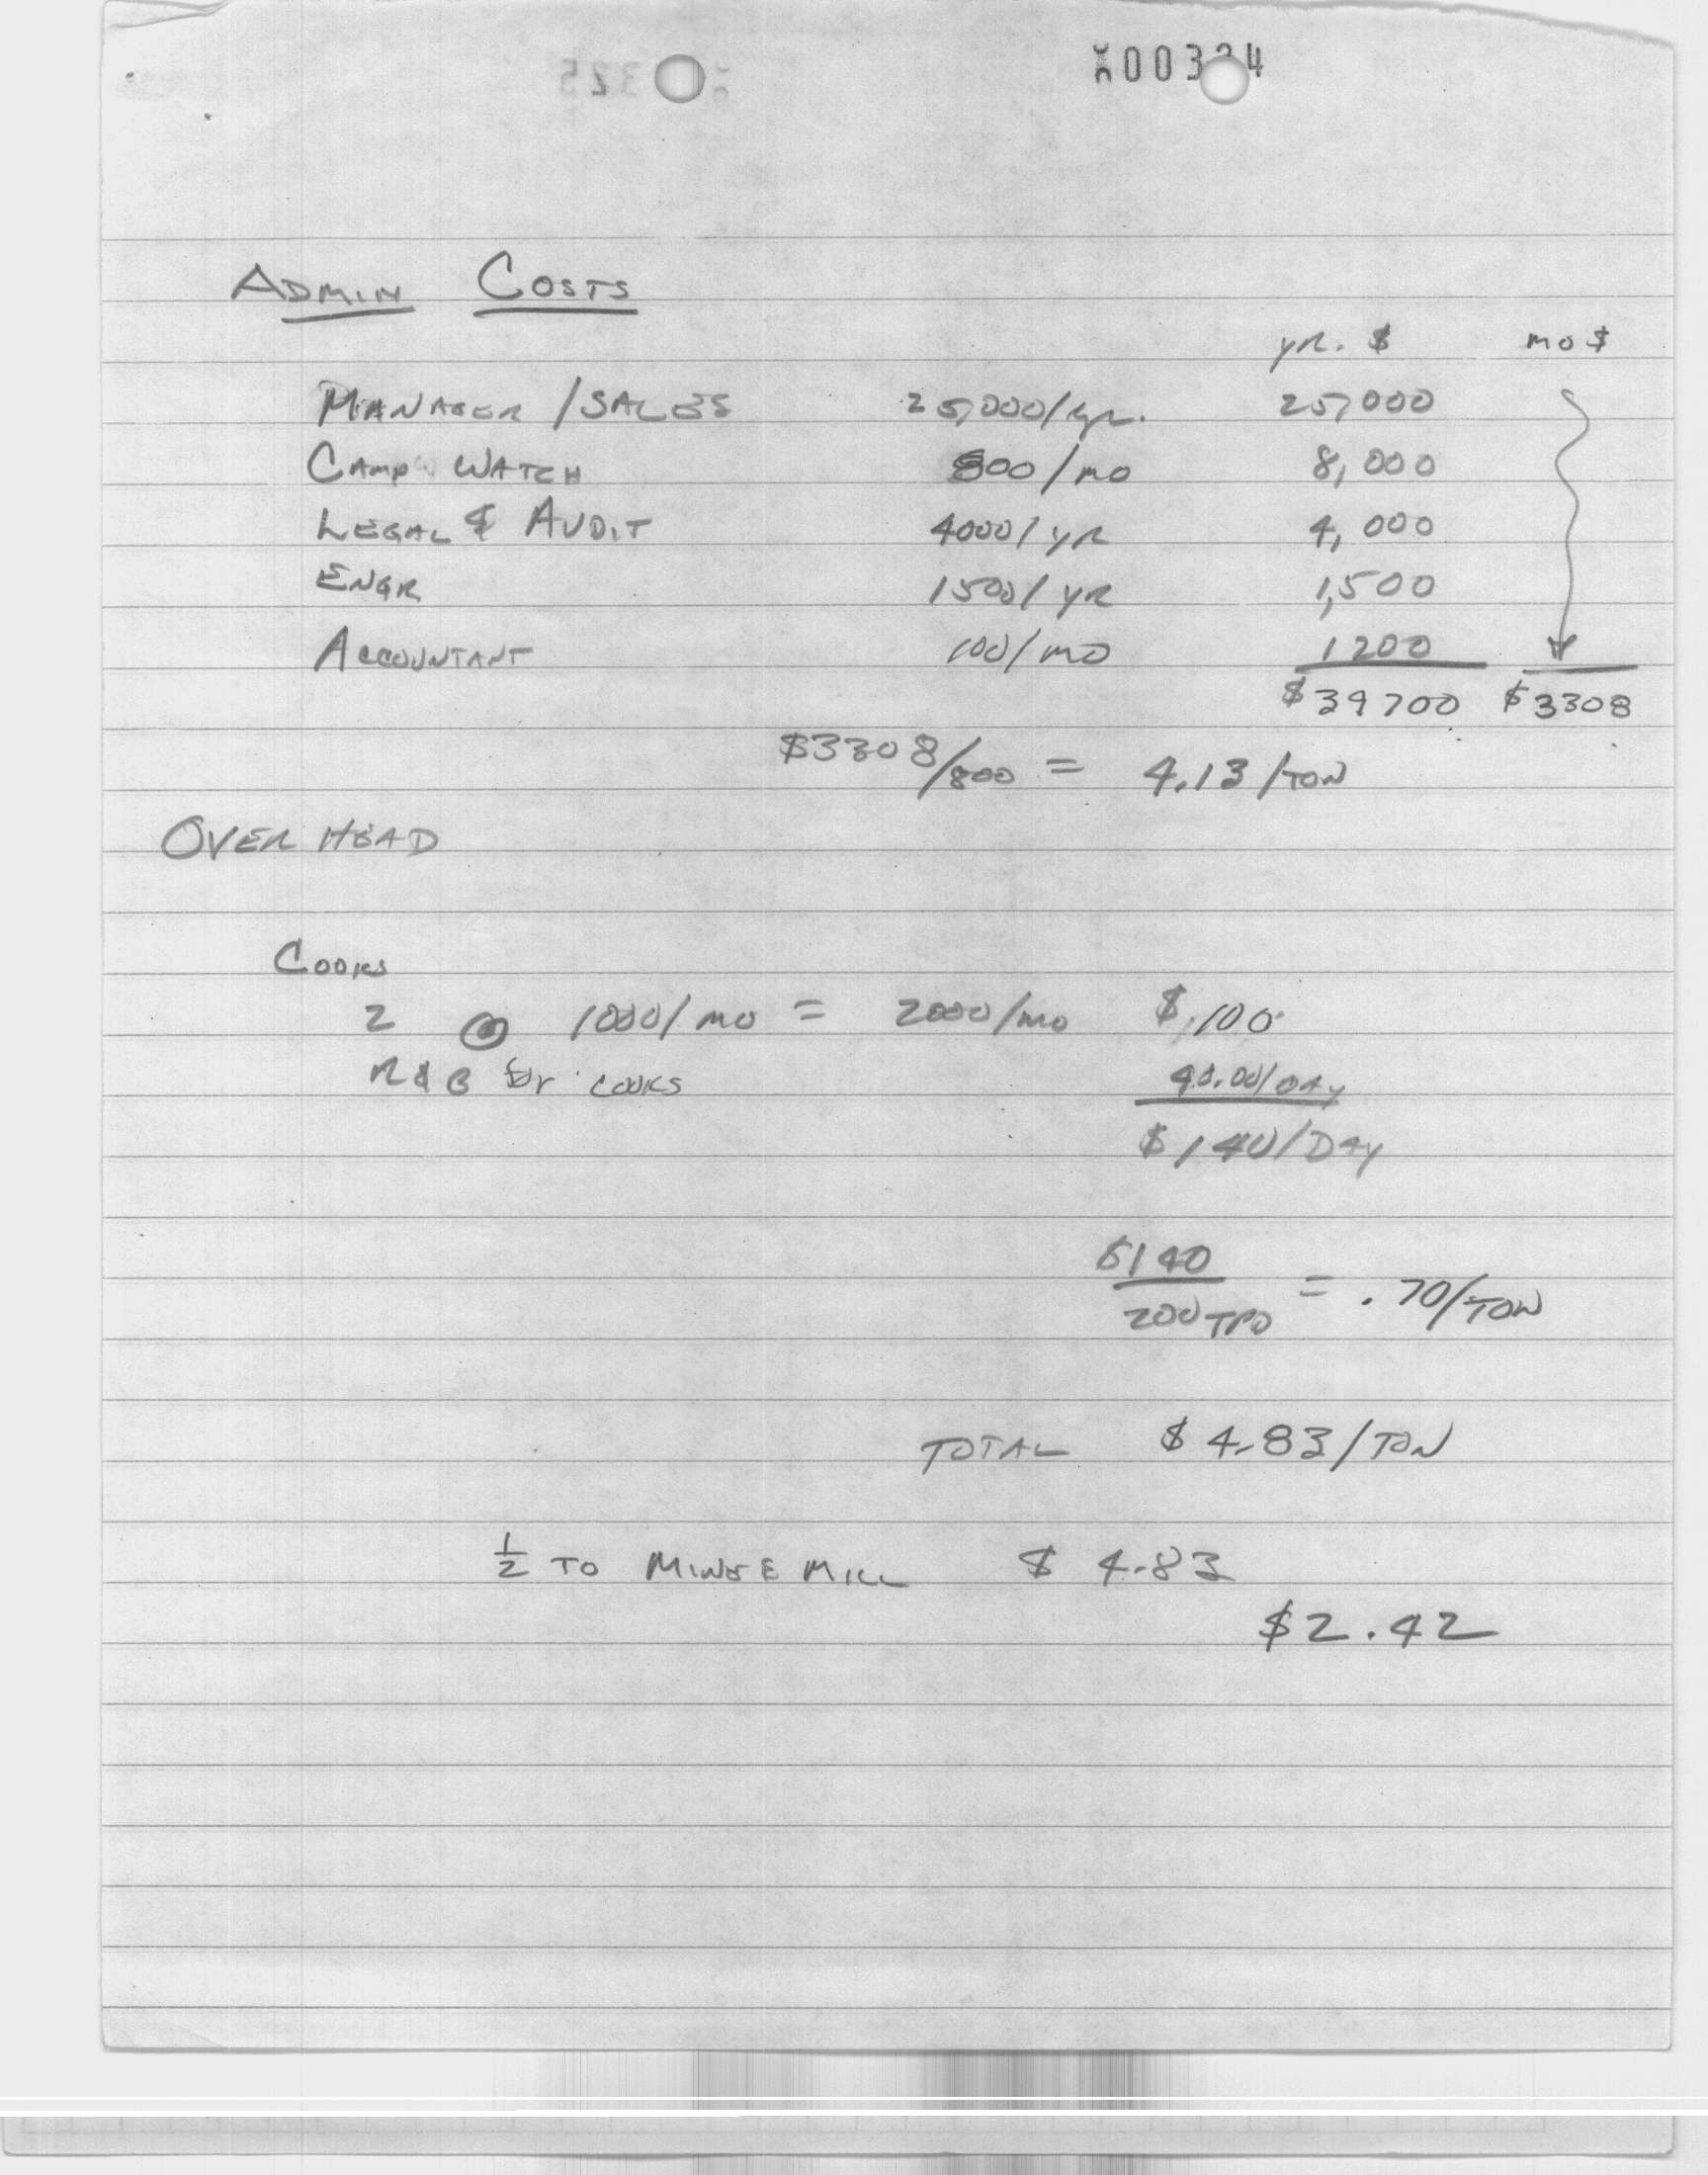 00324
ADMIN COSTS
yr. $ mo $
MANAGER / SALES 25,000/yr. 25,000
CAMP WATCH 800/mo 8,000
LEGAL & AUDIT 4000/yr 4,000
ENGR 1500/yr 1,500
ACCOUNTANT 100/mo 1200
$39700 $3308
$3308/800 = 4.13/TON
OVER HEAD
COOKS
2 @ 1000/mo = 2000/mo $ 100
R & B for cooks 40.00/DAY
$140/DAY
$140
200 TPD = .70/TON
TOTAL $ 4.83/TON
1/2 TO MINE & MILL $ 4.83
$2.42